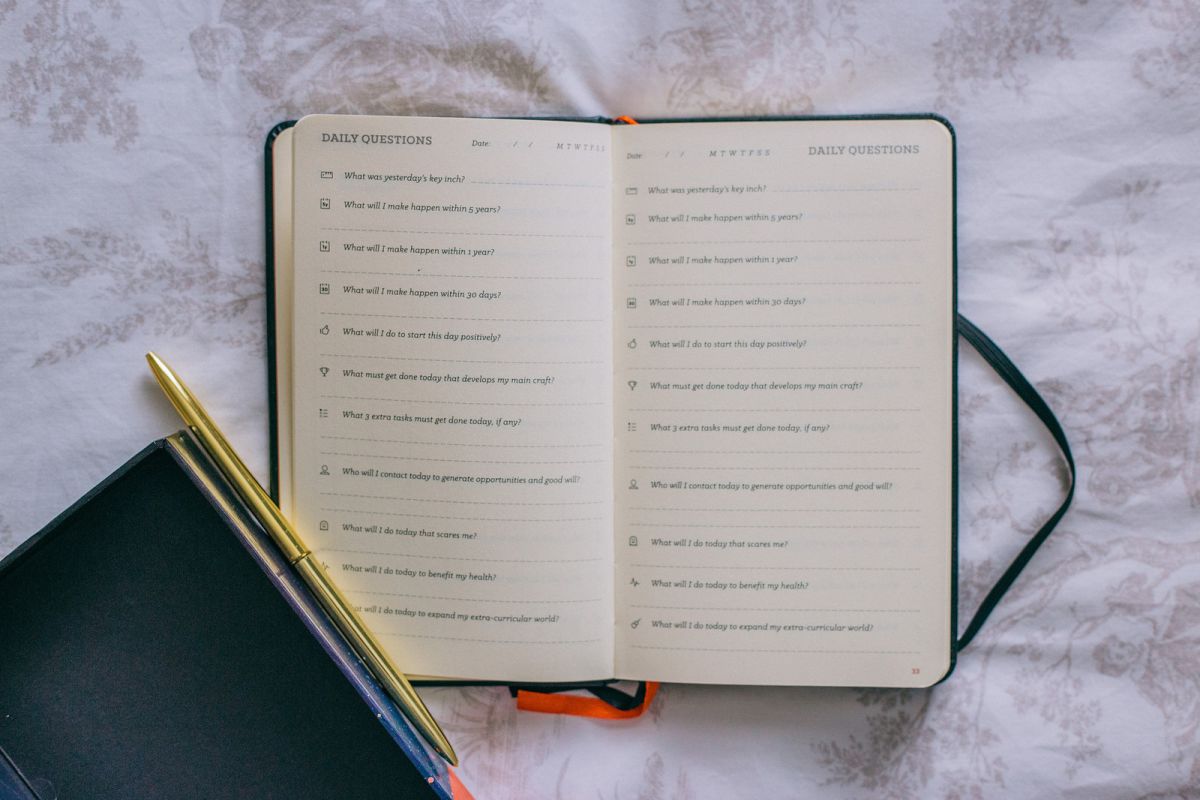 DAILY QUESTIONS Date: / / M T W T F S S
What was yesterday's key inch?
What will I make happen within 5 years?
What will I make happen within 1 year?
What will I make happen within 30 days?
What will I do to start this day positively?
What must get done today that develops my main craft?
What 3 extra tasks must get done today, if any?
Who will I contact today to generate opportunities and good will?
What will I do today that scares me?
What will I do today to benefit my health?
will I do today to expand my extra-curricular world?
Date: / / M T W T F S S DAILY QUESTIONS
What was yesterday's key inch?
What will I make happen within 5 years?
What will I make happen within 1 year?
What will I make happen within 30 days?
What will I do to start this day positively?
What must get done today that develops my main craft?
What 3 extra tasks must get done today, if any?
Who will I contact today to generate opportunities and good will?
What will I do today that scares me?
What will I do today to benefit my health?
What will I do today to expand my extra-curricular world?
33